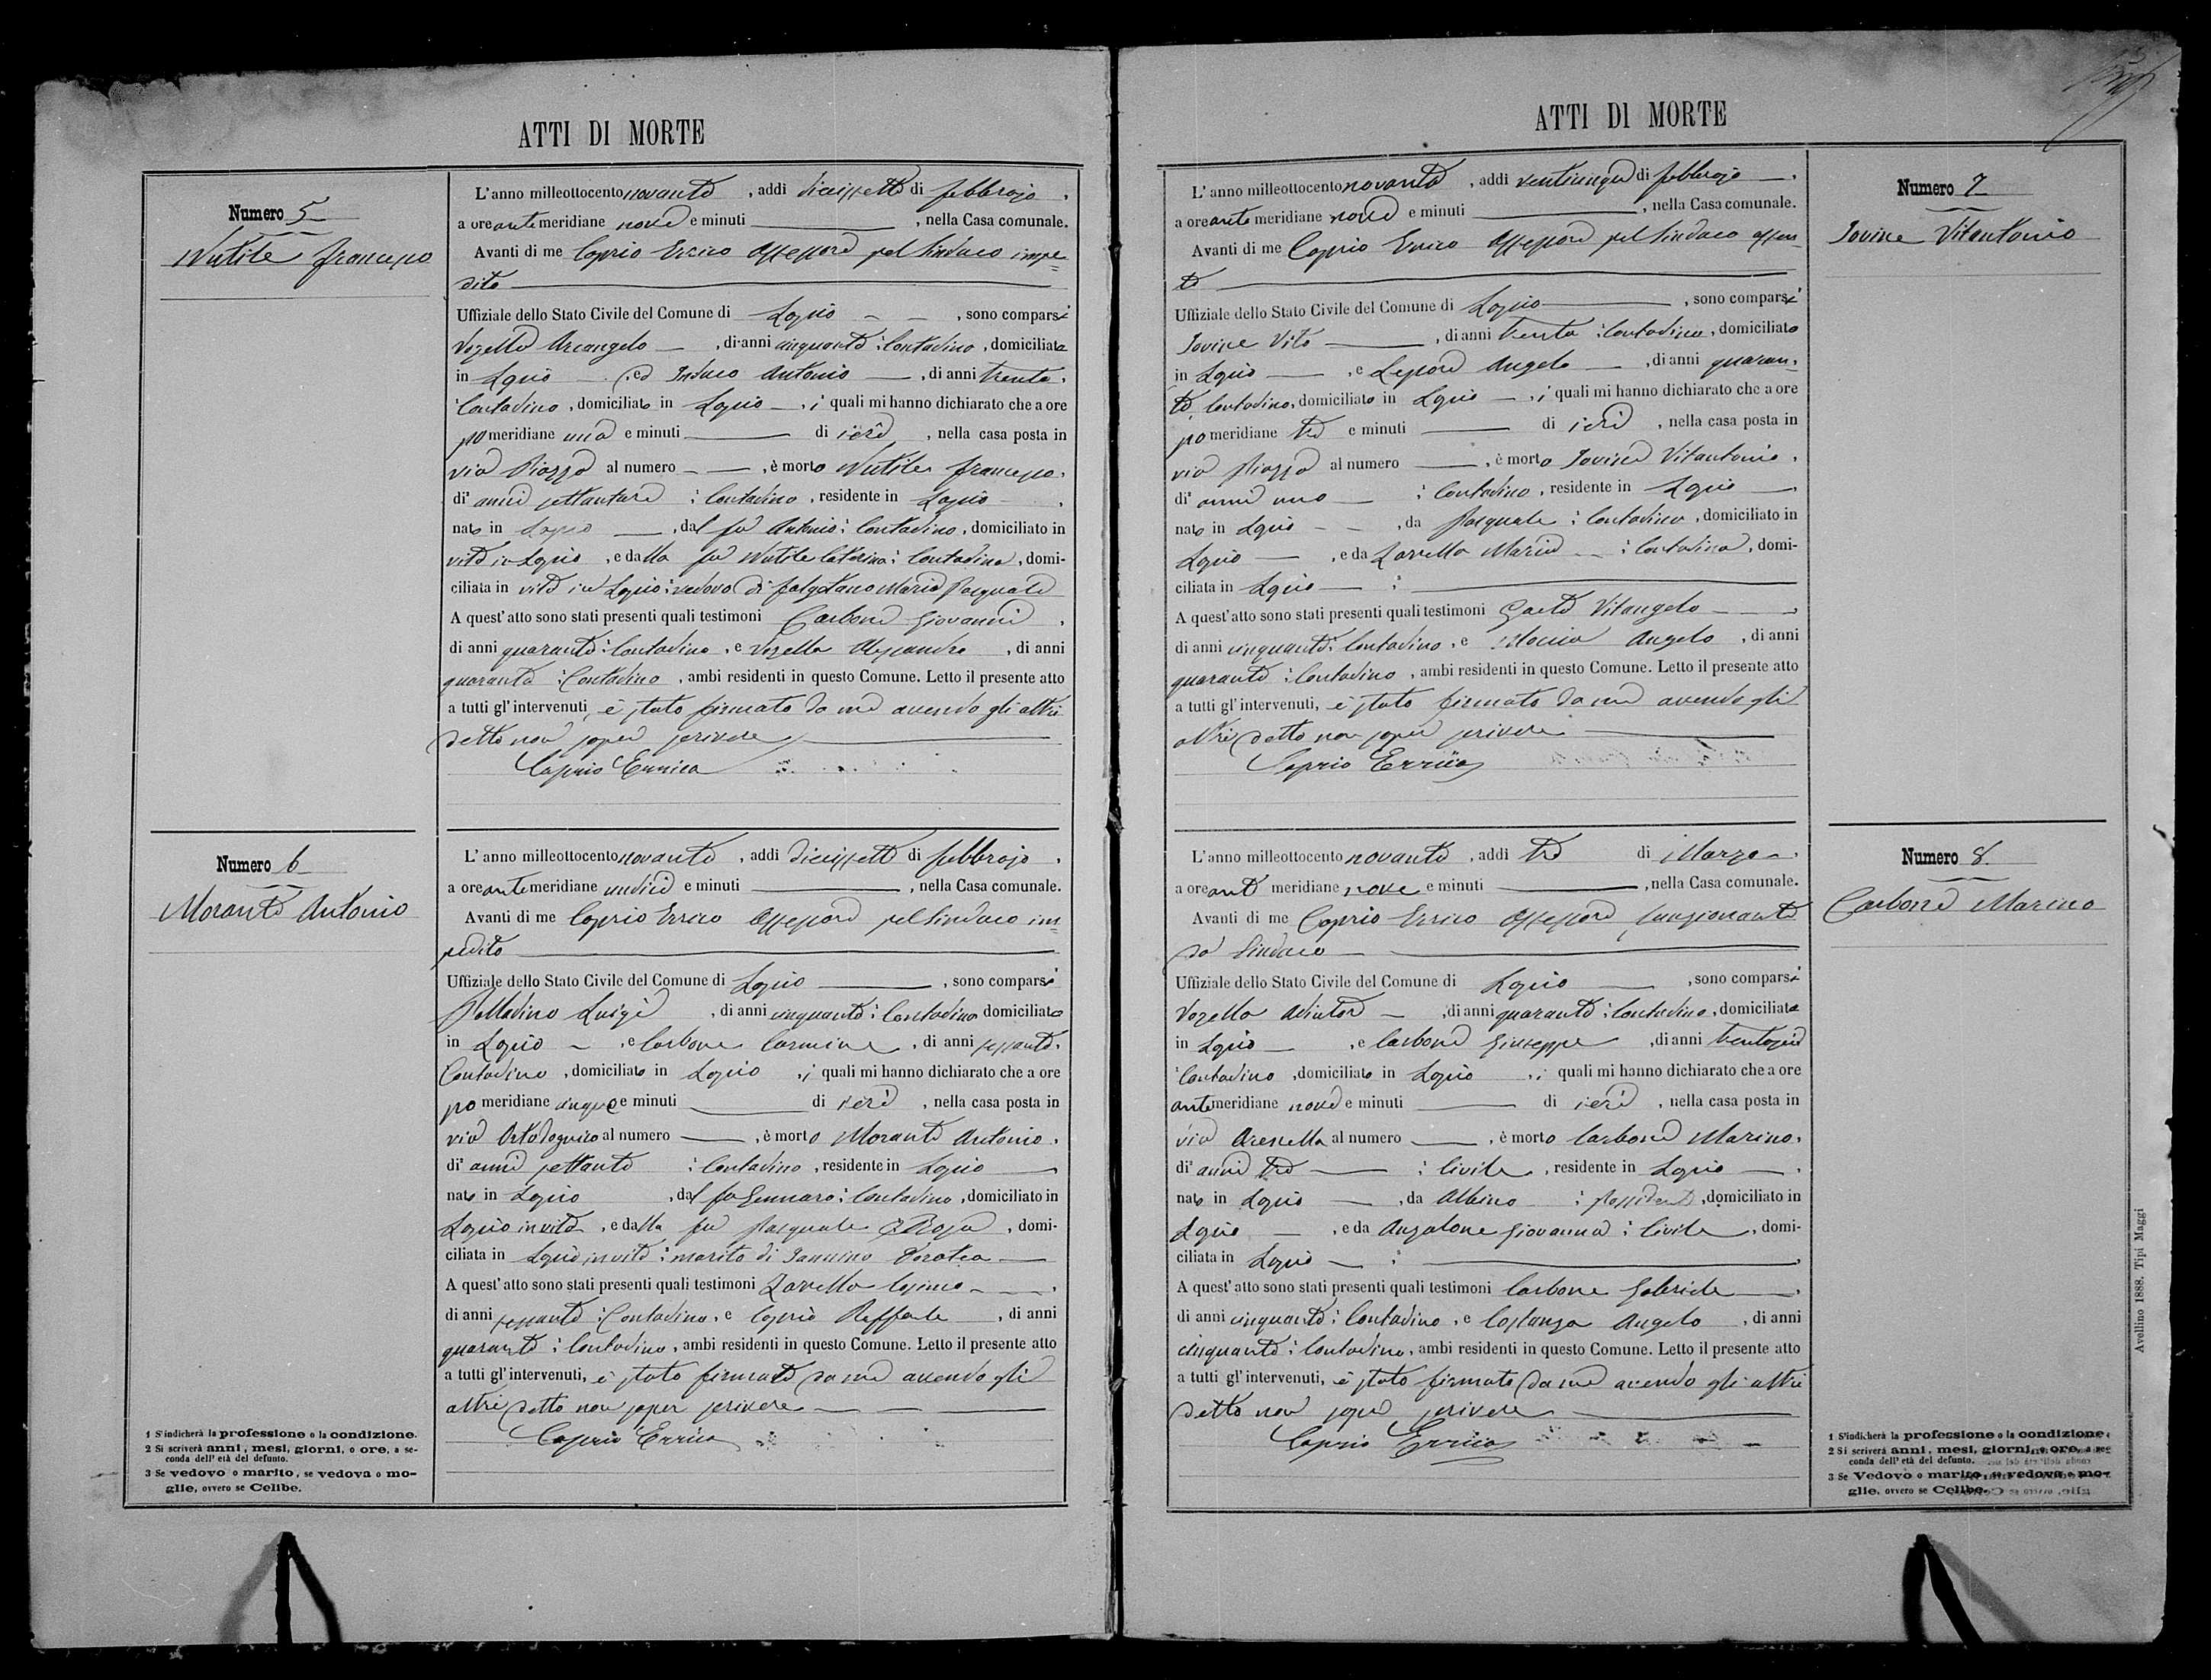 ATTI DI MORTE
Numero 5
Nutile Francesco
L'anno milleottocentonovanta, addì diciassette di febbrajo,
a ore antemeridiane nove e minuti, nella Casa comunale.
Avanti di me Caprio Errico Assessore pel Sindaco impe-
dito
Uffiziale dello Stato Civile del Comune di Lapio, sono comparsi
Vozella Arcangelo, di anni cinquanta; Contadino, domiciliato
in Lapio, ed Induco Antonio, di anni trenta,
Contadino, domiciliato in Lapio, i quali mi hanno dichiarato che a ore
pomeridiane una e minuti di ieri, nella casa posta in
via Piazza al numero, è morto Nutile Francesco,
di anni settantatre; Contadino, residente in Lapio,
nato in Lapio, dal fu Antonio; Contadino, domiciliato in
vita in Lapio, e dalla fu Nutile Caterina; Contadina, domi-
ciliata in vita in Lapio; vedovo di Maria Pasquale
A quest'atto sono stati presenti quali testimoni Carbone Giovanni,
di anni quaranta; Contadino, e Vozella Alesandro, di anni
quaranta; Contadino, ambi residenti in questo Comune. Letto il presente atto
a tutti gl'intervenuti, è stato firmato da me avendo gli altri
detto non saper scrivere
Caprio Errico
Numero 6
Morante Antonio
L'anno milleottocentonovanta, addì diciassette di febbrajo,
a ore antemeridiane undici e minuti, nella Casa comunale.
Avanti di me Caprio Errico Assessore pel Sindaco im-
pedito
Uffiziale dello Stato Civile del Comune di Lapio, sono comparsi
Palladino Luigi, di anni cinquanta; Contadino domiciliato
in Lapio, e Carbone Carmine, di anni sessanta,
Contadino, domiciliato in Lapio, i quali mi hanno dichiarato che a ore
pomeridiane cinque e minuti di ieri, nella casa posta in
via al numero, è morto Morante Antonio,
di anni settanta; Contadino, residente in Lapio
nato in Lapio, dal fu Gennaro; Contadino, domiciliato in
Lapio in vita, e dalla fu Pasquale Rosa, domi-
ciliata in Lapio in vita; marito di Iannino Doratea
A quest'atto sono stati presenti quali testimoni Zarrella Cosimo,
di anni sessanta; Contadino, e Caprio Raffaele, di anni
quaranta; Contadino, ambi residenti in questo Comune. Letto il presente atto
a tutti gl'intervenuti, è stato firmato da me avendo gli
altri detto non saper scrivere
Caprio Errico
1 S'indicherà la professione o la condizione.
2 Si scriverà anni, mesi, giorni, o ore, a se-
conda dell'età del defunto.
3 Se vedovo o marito, se vedova o mo-
glie, ovvero se Celibe.
ATTI DI MORTE
Numero 7
Iovine Vitantonio
L'anno milleottocentonovanta, addì venticinque di febbrajo,
a ore antemeridiane nove e minuti, nella Casa comunale.
Avanti di me Caprio Errico Assessore pel Sindaco assen-
te
Uffiziale dello Stato Civile del Comune di Lapio, sono comparsi
Iovine Vito, di anni trenta; Contadino, domiciliato
in Lapio, e Lepore Angelo, di anni quaran-
ta, Contadino, domiciliato in Lapio, i quali mi hanno dichiarato che a ore
pomeridiane tre e minuti di ieri, nella casa posta in
via Piazza al numero, è morto Iovine Vitantonio,
di anni uno; Contadino, residente in Lapio,
nato in Lapio, da Pasquale; Contadino, domiciliato in
Lapio, e da Zarrella Maria; Contadina, domi-
ciliata in Lapio;
A quest'atto sono stati presenti quali testimoni Gaeta Vitangelo,
di anni cinquanta; Contadino, e Moccia Angelo, di anni
quaranta; Contadino, ambi residenti in questo Comune. Letto il presente atto
a tutti gl'intervenuti, è stato firmato da me avendo gli
altri detto non saper scrivere
Caprio Errico
Numero 8.
Carbone Marino
L'anno milleottocentonovanta, addì tre di Marzo,
a ore ante meridiane nove e minuti, nella Casa comunale.
Avanti di me Caprio Errico Assessore funzionante
da Sindaco
Uffiziale dello Stato Civile del Comune di Lapio, sono comparsi
Vozella, di anni quaranta; Contadino, domiciliato
in Lapio, e Carbone Giuseppe, di anni trentasei
Contadino, domiciliato in Lapio, i quali mi hanno dichiarato che a ore
antemeridiane nove e minuti di ieri, nella casa posta in
via Arenella al numero, è morto Carbone Marino,
di anni tre; Civile, residente in Lapio,
nato in Lapio, da Albino; Possidente, domiciliato in
Lapio, e da Anzalone Giovanna; Civile, domi-
ciliata in Lapio;
A quest'atto sono stati presenti quali testimoni Carbone Gabriele,
di anni cinquanta; Contadino, e Costanza Angelo, di anni
cinquanta; Contadino, ambi residenti in questo Comune. Letto il presente atto
a tutti gl'intervenuti, è stato firmato da me avendo gli altri
detto non saper scrivere
Caprio Errico
1 S'indicherà la professione o la condizione.
2 Si scriverà anni, mesi, giorni, o ore, a se-
conda dell'età del defunto.
3 Se Vedovo o marito, se vedova o mo-
glie, ovvero se Celibe.
Avellino 1888. Tipi Maggi